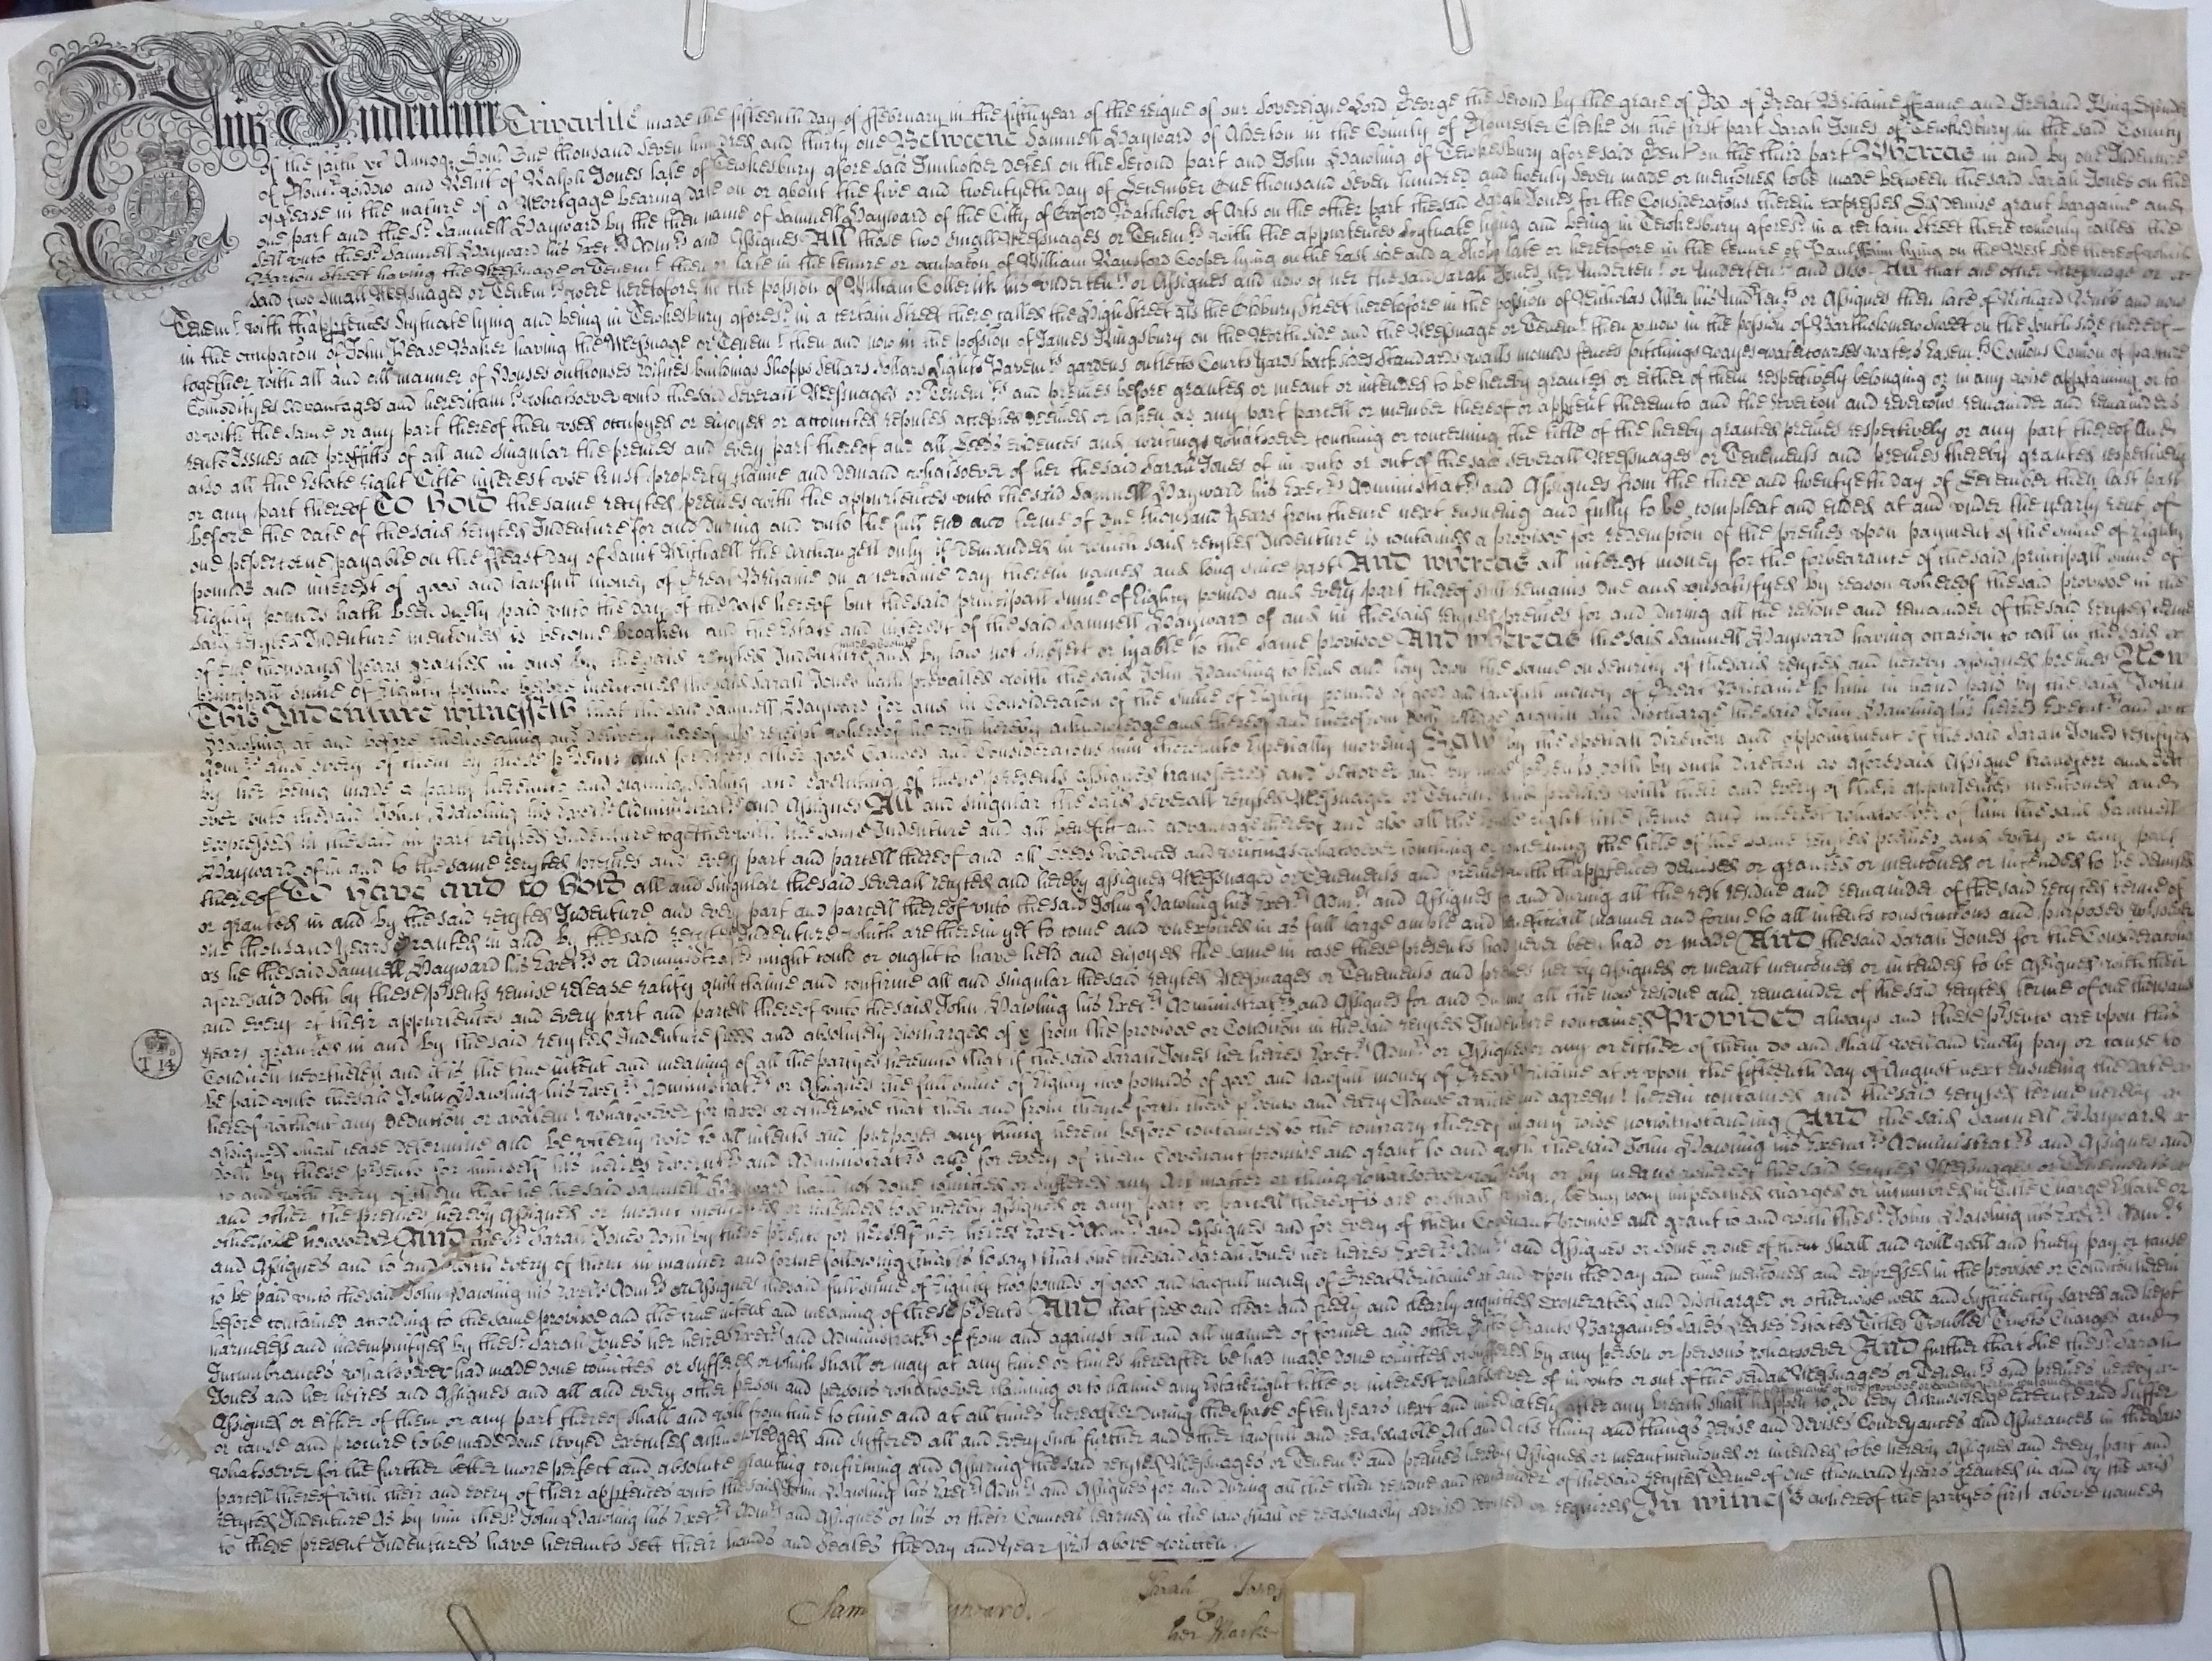 This Indenture Tripartite made the fifteenth day of ffebruary in the fifth year of the reigne of our Sovereigne Lord George the second by the grace of God of Great Britaine ffrance and Ireland King Defender
of the faith &c Annoq; Dom̄ One thousand seven hundred and thirty one Betweene Samuell Hayward of Alderton in the County of Gloucester Clerke on the first part Sarah Jones of Tewkesbury in the said County
of Glouc^r widdow and Relict of Ralph Jones late of Tewkesbury aforesaid Innholder deced on the second part and John Hawling of Tewkesbury aforesaid Gent on the third part Whereas in and by one Indenture
of Lease in the nature of a Mortgage bearing date on or about the five and twentyeth day of December One thousand seven hundred and twenty seven made or mencōned to be made between the said Sarah Jones on the
one part and the s^d Samuell Hayward by the then name of Samuell Hayward of the Citty of Oxford Batchelor of Arts on the other part the said Sarah Jones for the Consideratōns therein expressed Did demise grant bargaine and
sell unto the s^d Samuell Hayward his Exec^rs Adm^rs and Assignes All those two small Messuages or Tenem^ts with the appurtences scytuate lying and being in Tewkesbury afores^d in a certain Street there comōnly called the
Barton Street having the Messuage or Tenem^t then or late in the tenure or occupatōn of William Ransford Cooper lying on the East side and a late or heretofore in the tenure of lying on the West side thereof which
said two small Messuages or Tenem^ts were heretofore in the possion of William Collerick his undertent^s or Assignes and now of her the said Sarah Jones her undertent^s or Undertent^s and also All that one other Messuage or
Tenem^t with thapptences scytuate lying and being in Tewkesbury afores^d in a certain Street there called the High Street als the Oldbury Street heretofore in the possion of Nicholas Allen his Undten^ts or Assignes then late of Richard and now
in the occupatōn of John Pease Baker having the Messuage or Tenem^t then and now in the possion of James Kingsbury on the North side and the Messuage or Tenem^t then & now in the possion of Bartholomew Sweet on the South side thereof
together with all and all manner of Houses outhouses Edifices buildings Shopps Sellars Sollars Lights Pavem^ts gardens outletts Courts yards backsides Standards walls mounds fences pitchings wayes watercourses waters Easem^ts Comons Comon of pasture
Comodityes advantages and hereditam^ts whatsoever unto the said severall Messuages or Tenem^ts and premes before granted or meant or intended to be hereby granted or either of them respectively belonging or in any wise apptaining or to
or with the same or any part thereof then used occupyed or enjoyed or accounted reputed accepted deemed or taken as any part parcell or member thereof or apptent thereunto and the revercōn and revercōns remainder and remainders
rents Issues and proffitts of all and singular the premes and every part thereof and all Deeds evidences and writings whatsoever touching or concerning the title of the hereby granted premes respectively or any part thereof And
also all the Estate right Title interest use trust property claime and demand whatsoever of her the said Sarah Jones of in unto or out of the said severall Messuages or Tenements and premes thereby granted respectively
or any part thereof To Hold the same recyted premes with the appurtences unto the said Samuell Hayward his Exec^rs Administrat^rs and Assignes from the three and twentyeth day of December then last past
before the date of the said recyted Indenture for and during and unto the full end and terme of One thousand years from thence next ensueing and fully to be compleat and ended at and under the yearly rent of
one peppercorne payable on the Feast day of Saint Michaell the Archangell only if demanded in which said recyted Indenture is contained a provisoe for redemption of the premes upon payment of the sume of Eighty
pounds and interest of good and lawfull money of Great Britaine on a certaine day therein named and long since past And whereas all interest money for the forbearance of the said principall sume of
Eighty pounds hath been duely paid unto the day of the date hereof but the said principall sume of Eighty pounds and every part thereof still remains due and unsatisfyed by reason whereof the said provisoe in the
said recyted Indenture mencōned is become broaken and the Estate and interest of the said Samuell Hayward of and in the said recyted premes for and during all the residue and remainder of the said recyted terme
of One thousand years granted in and by the said recyted Indenture made absolute and by law not subject or lyable to the same provisoe And whereas the said Samuell Hayward having occasion to call in the said
principall sume of Eighty pounds before mencōned the said Sarah Jones hath prevailed with the said John Hawling to lend and lay down the same on security of the said recyted and hereby assigned premes Now
This Indenture witnesseth that the said Samuell Hayward for and in Consideratōn of the sume of Eighty pounds of good and lawfull money of Great Britaine to him in hand paid by the said John
Hawling at and before thensealing and delivery hereof the receipt whereof he doth hereby acknowledge and thereof and therefrom doth acquitt and discharge the said John Hawling his heires Execut^rs and
Adm^rs and every of them by these p^rsents and for divers other good Causes and Consideratōns him thereunto Especially moveing Hath by the speciall direction and appointment of the said Sarah Jones testifyed
by her being made a party hereunto and signing Sealing and Executing of these presents assigned transferred and settover and by these p^rsents doth by such direction as aforesaid Assigne transferr and sett
over unto the said John Hawling his Exec^rs Administrat^rs and Assignes All and singular the said severall recyted Messuages or Tenem^ts and premes with their and every of their appurtences mencōned and
expressed in the said in part recyted Indenture together with the same Indenture and all benefitt and advantage thereof and also all the Estate right title terme and interest whatsoever of him the said Samuell
Hayward of in and to the same recyted premes and every part and parcell thereof and all Deeds Evidences and writings whatsoever touching or concerning the title of the same recyted premes and every or any part
thereof To have and to hold all and singular the said severall recyted and hereby assigned Messuages or Tenements and premes with th'apptences demised or granted or mencōned or intended to be demised
or granted in and by the said recyted Indenture and every part and parcell thereof unto the said John Hawling his Exec^rs Adm^rs and Assignes for and during all the rest residue and remainder of the said recyted terme of
one thousand years granted in and by the said recyted Indenture which are therein yet to come and unexpired in as full large ample and beneficiall manner and forme to all intents constructions and purposes whatsoever
as he the said Samuell Hayward his Exec^rs or Administrat^rs might could or ought to have held and enjoyed the same in case these presents had never been had or made And the said Sarah Jones for the Consideratōns
aforesaid doth by these p^rsents remise release ratify quitt claime and confirme all and singular the said recyted Messuages or Tenements and premes hereby assigned or meant mencōned or intended to be assigned with their
and every of their appurtences and every part and parcell thereof unto the said John Hawling his Exec^rs Administrat^rs and Assignes for and during all the now residue and remainder of the said recyted terme of one thousand
years granted in and by the said recyted Indenture freed and absolutely discharged of & from the provisoe or Condicōn in the said recyted Indenture contained Provided always and these p^rsents are upon this
Condicōn nevertheless and it is the true intent and meaning of all the partyes hereunto that if the said Sarah Jones her heires Exec^rs Adm^rs or Assignes or any or either of them do and shall well and truely pay or cause to
be paid unto the said John Hawling his Exec^rs Administrat^rs or Assignes the full sume of Eighty two pounds of good and lawfull money of Great Britaine at or upon the fifteenth day of August next ensueing the date
hereof without any deduction or abatem^t whatsoever for taxes or otherwise that then and from thence forth these p^rsents and every Clause article and agreem^t herein contained and the said recyted terme hereby
assigned shall cease determine and be utterly void to all intents and purposes any thing herein before contained to the contrary thereof in any wise notwithstanding And the said Samuell Hayward
doth by these p^rsents for himself his heires Execut^rs and Administrat^rs and for every of them Covenant promise and grant to and with the said John Hawling his Execut^rs Administrat^rs and Assignes and
to and with every of them that he the said Samuell Hayward hath not done comitted or suffered any Act matter or thing whatsoever whereby or by means whereof the said recyted Messuages or Tenements
and other the premes hereby Assigned or meant mencōned or intended to be hereby assigned or any part or parcell thereof is are or shall or may be any way impeached charged or incumbred in Title Charge Estate or
otherwise howsoever And the s^d Sarah Jones doth by these p^rsents for herself her heires Exec^rs Adm^rs and Assignes and for every of them Covenant promise and grant to and with the s^d John Hawling his Exec^rs Adm^rs
and Assignes and to and with every of them in manner and forme following (that is to say) that she the said Sarah Jones her heires Exec^rs Adm^rs and Assignes or some or one of them shall and will well and truely pay or cause
to be paid unto the said John Hawling his Exec^rs Adm^rs or Assignes the said full sume of Eighty two pounds of good and lawfull money of Great Britaine at and upon the day and time mencōned and expressed in the provisoe or Condicōn herein
before contained according to the same provisoe and the true intent and meaning of these p^rsents And that free and clear and freely and clearly acquitted exonerated and discharged or otherwise well and sufficiently saved and kept
harmeless and indempnifyed by the s^d Sarah Jones her heires Exec^rs and Administrat^rs of from and against all and all manner of former and other Gifts Grants Bargaines Sales Leases Estates Titles Troubles Trusts Charges and
Incumbrances whatsoever had made done comitted or suffered or which shall or may at any time or times hereafter be had made done comitted or suffered by any person or persons whatsoever And further that she the s^d Sarah
Jones and her heires and Assignes and all and every other person and persons whatsoever claiming or to claime any Estate right title or interest whatsoever of in unto or out of the severall Messuages or Tenem^ts and premes hereby
Assigned or either of them or any part thereof shall and will from time to time and at all times hereafter during the space of ten years next and imediately after any breach shall happen to do levy Acknowledge Execute and suffer
or cause and procure to be made done levyed executed acknowledged and suffered all and every such further and other lawfull and reasonable Act and Acts thing and things devise and devises Conveyances and Assurances in the law
whatsoever for the further better more perfect and absolute granting confirming and Assuring the said recyted Messuages or Tenem^ts and premes hereby Assigned or meant mencōned or intended to be hereby Assigned and every part and
parcell thereof with their and every of their apptences unto the said John Hawling his Exec^rs Adm^rs and Assignes for and during all the then residue and remainder of the said recyted Terme of One thousand years granted in and by the said
recyted Indenture As by him the s^d John Hawling his Exec^rs Adm^rs and Assignes or his or their Councell learned in the law shall be reasonably advised devised or required In witness whereof the partyes first above named
to these present Indentures have hereunto sett their hands and Seales the day and year first above written
T 14
Sam Hayward
Sarah Jones
her Marke